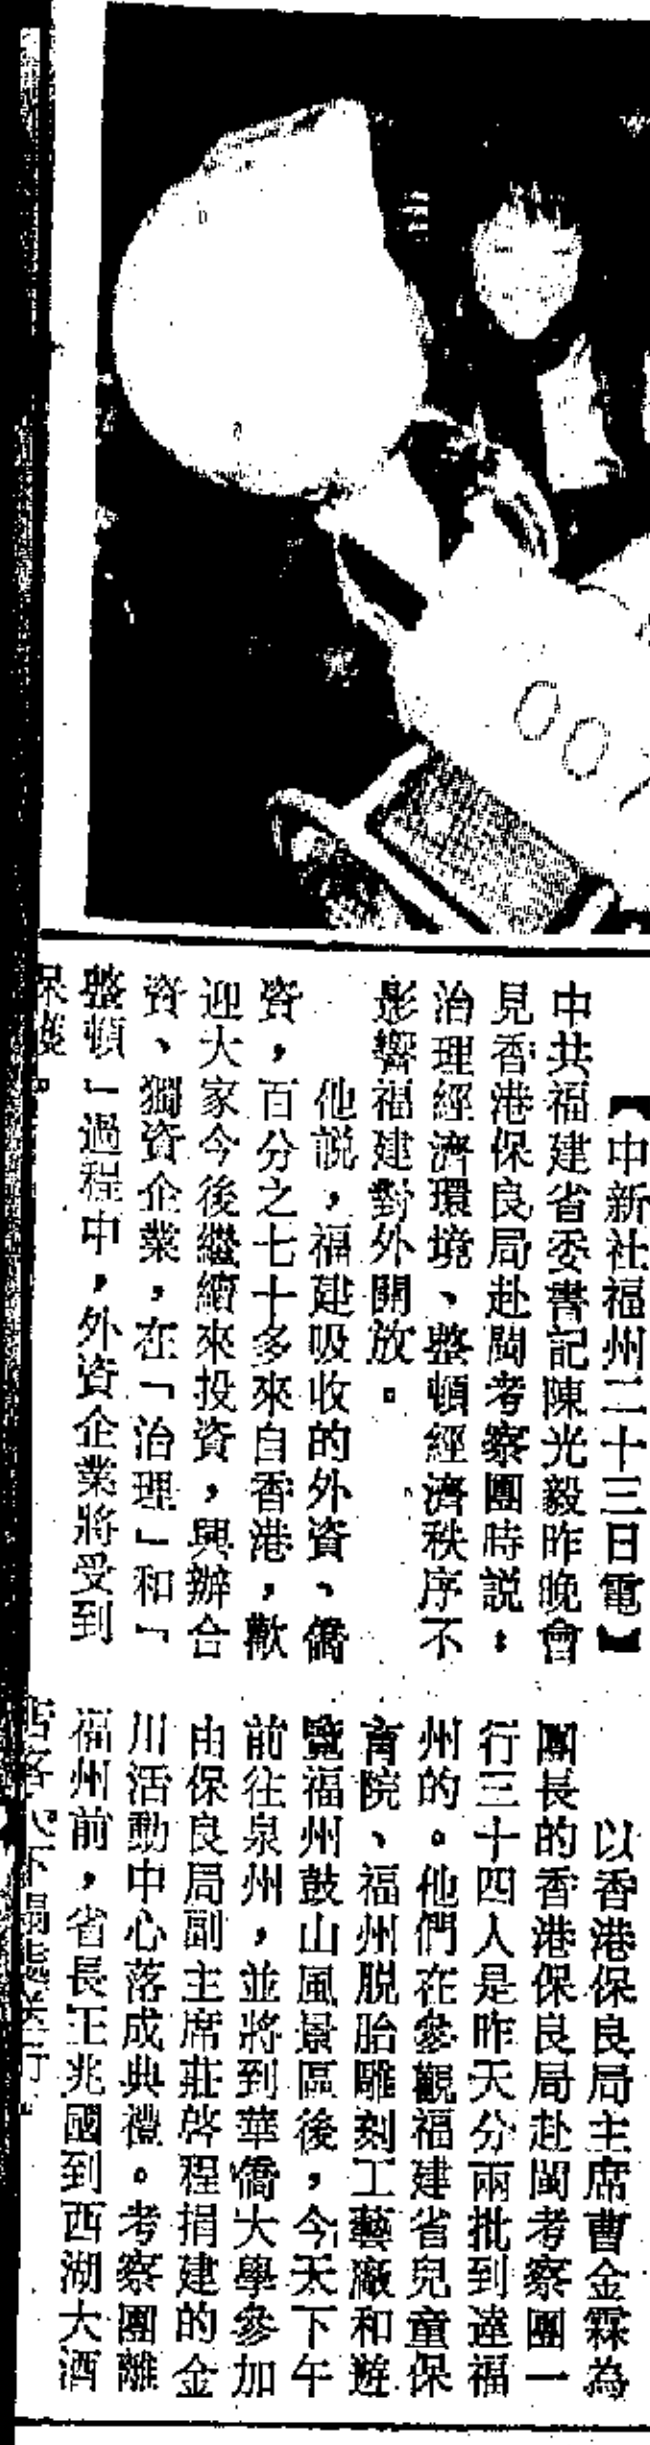 007
【中新社福州二十三日電】
中共福建省委書記陳光毅昨晚會
見香港保良局赴閩考察團時説：
治理經濟環境、整頓經濟秩序不
影響福建對外開放。
他説，福建吸收的外資、僑
資，百分之七十多來自香港，歡
迎大家今後繼續來投資，興辦合
資、獨資企業，在「治理」和「
整頓」過程中，外資企業將受到
保護
以香港保良局主席曹金霖為
團長的香港保良局赴閩考察團一
行三十四人是昨天分兩批到達福
州的。他們在參觀福建省兒童保
育院、福州脱胎雕刻工藝廠和遊
覽福州鼓山風景區後，今天下午
前往泉州，並將到華僑大學參加
由保良局副主席莊啓程捐建的金
川活動中心落成典禮。考察團離
福州前，省長王兆國到西湖大酒
店